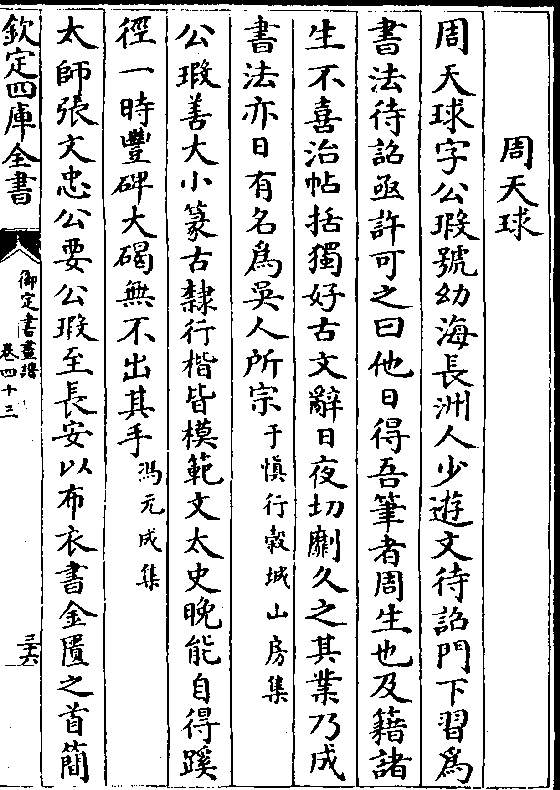 周天球
周天球字公瑕號幼海長洲人少遊文待詔門下習為
書法待詔亟許可之曰他日得吾筆者周生也及籍諸
生不喜治帖括獨好古文辭日夜切劘久之其業乃成
書法亦日有名為吳人所宗于慎行穀城山房集
公瑕善大小篆古隸行楷皆模範文太史晚能自得蹊
徑一時豐碑大碣無不出其手馮元成集
太師張文忠公要公瑕至長安以布衣書金匱之首簡
欽定四庫全書
御定書畫譜
卷四十三
三十六